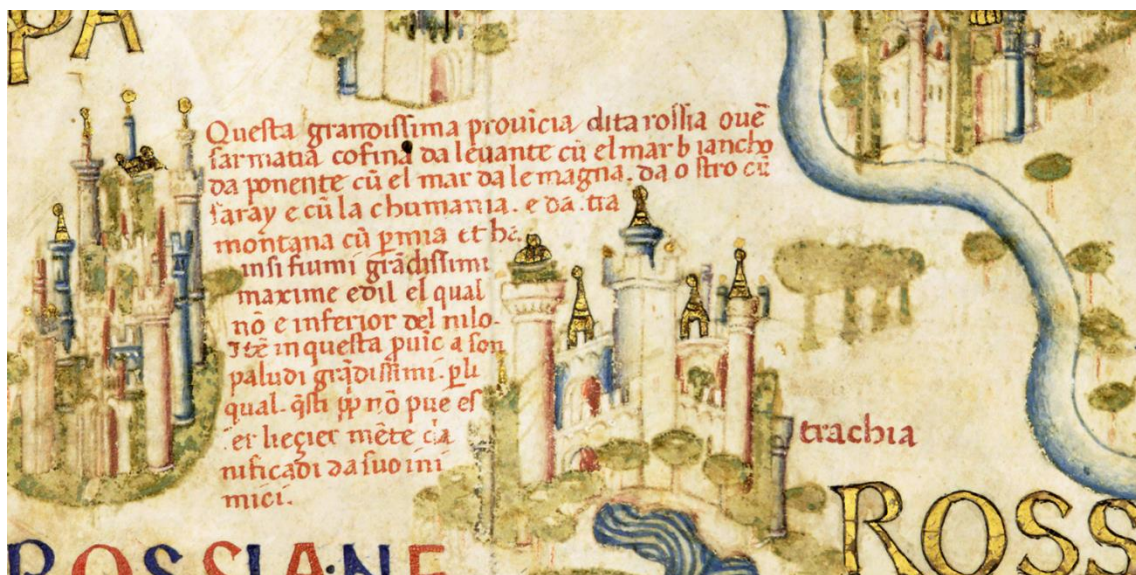 PA
Questa grandissima prouĩcia dita rossia ouẽ
sarmatia cofina da leuante cũ el mar biancho
da ponente cũ el mar da le magna. da ostro cũ
saray e cũ la chumania. e da tra
montana cũ ꝑmia et hẽ.
insi fiumi grãdissimi
maxime edil el qual
nõ e inferior del nilo.
Itẽ in questa ꝓuic a son
paludi grãdissimi. ꝑ li
qual. q̃sti pp nõ pue es
er liegier mẽte da
nificadi da suo ini
mici.
trachia
ROSS
ROSSIANE